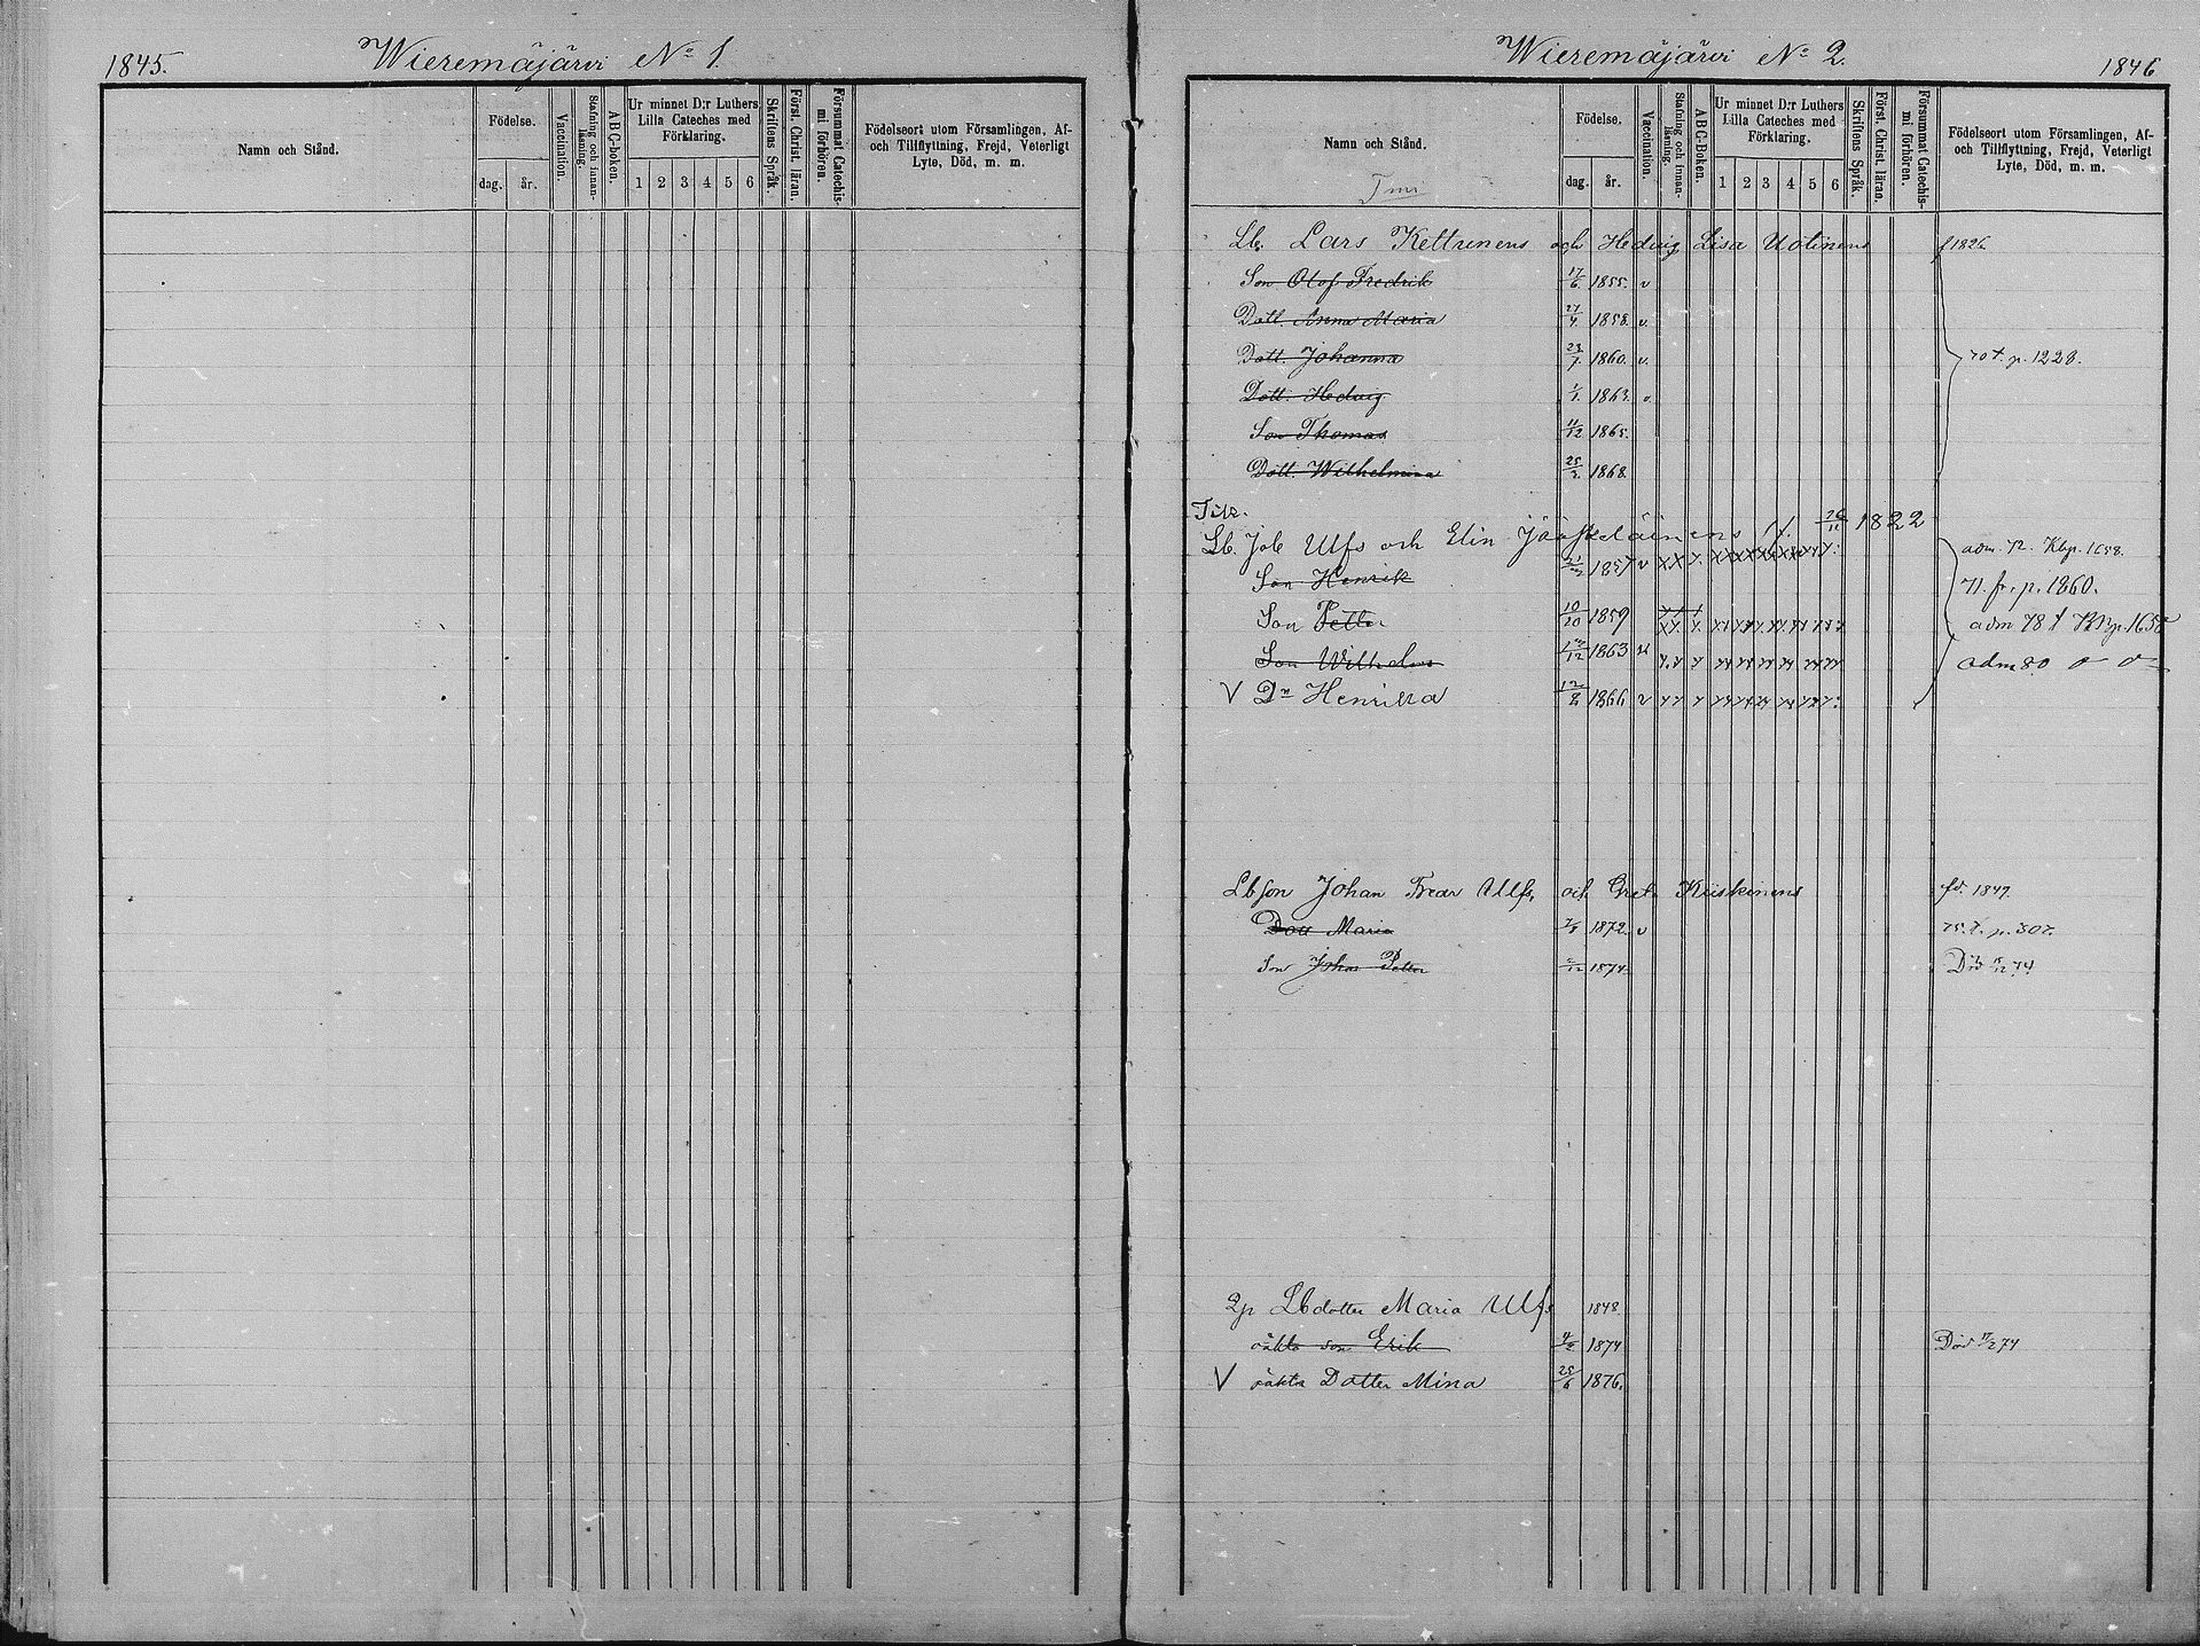 1845.
Wieremäjärvi No 1.
Namn och Stånd.
Födelse.
dag. år.
Vaccination.
Stafning och innan-läsning.
ABC-boken.
Ur minnet D:r Luthers Lilla Cateches med Förklaring.
1 2 3 4 5 6
Skriftens Språk.
Först. Christ. läran.
Försummat Catechis-mi förhören.
Födelseort utom Församlingen, Af- och Tillflyttning, Frejd, Veterligt Lyte, Död, m. m.
Wieremäjärvi No 2.
1846
Namn och Stånd.
Födelse.
dag. år.
Vaccination.
Stafning och innan-läsning.
ABC-Boken.
Ur minnet D:r Luthers Lilla Cateches med Förklaring.
1 2 3 4 5 6
Skriftens Språk.
Först. Christ. läran.
Försummat Catechis-mi förhören.
Födelseort utom Församlingen, Af- och Tillflyttning, Frejd, Veterligt Lyte, Död, m. m.
Lb. Lars Kettunens och Hedvig Lisa Uotinens f 1826
Son Olof Fredrik 17/6 1855. v
Dott. Anna Maria 1858. v.
Dott. Johanna 1860. v. 70 t. p. 1228.
Dott. Hedvig 1/1. 1863. v.
Son Thomas 11/12 1865.
Dott. Wilhelmina 1868.
Lb. Job Ulfs och Elin Jääskeläinens 1822
Son Henrik 1857 v adm. 72. Kbp. 1658.
71. fr. p. 1860.
Son Petter 10/10 1859 adm 78 t Kbp. 1658
Son Wilhelm 1863 adm 80
V Dr Henrika 12/8 1866 v
Lb son Johan Fredr Ulfs, och Gret. Kiiskinens fd. 1849.
Dott Maria 1872. v 75. t. p. 307.
Son Johan Petter 1874. Död 74.
Lb dotter Maria Ulfs 1848.
oäkta son Erik 1874 Död 74
V oäkta Dotter Mina 25/6 1876.